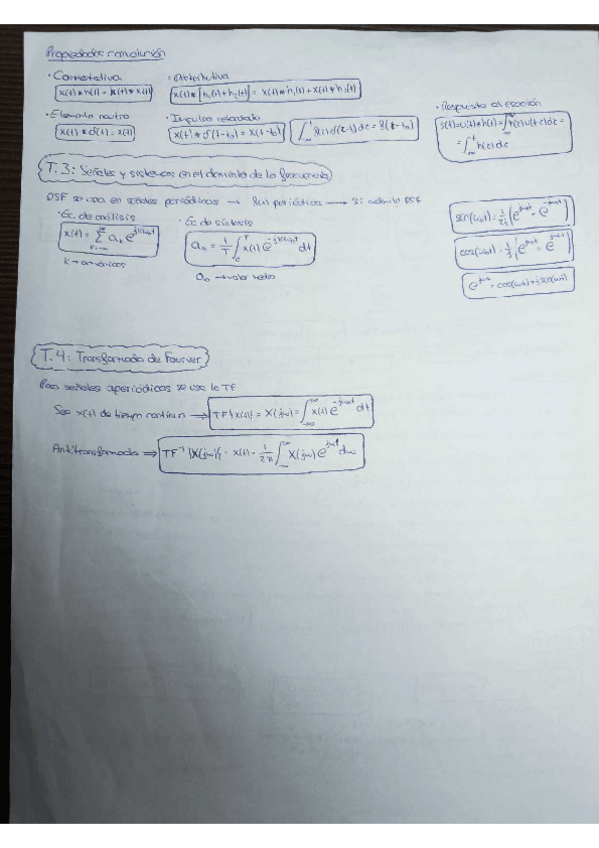 Propiedades convolución
· Conmutativa
x(t) * h(t) = h(t) * x(t)
· Distributiva
x(t) * [h₁(t) + h₂(t)] = x(t) * h₁(t) + x(t) * h₂(t)
· Elemento neutro
x(t) * δ(t) = x(t)
· Impulso retardado
x(t) * δ(t-t₀) = x(t-t₀)
· Respuesta al escalón
T.3: Señales y sistemas en el dominio de la frecuencia
DSF se usa en señales periódicas → periódicas → Si DSF
· Ec. de análisis
x(t) = Σ aₖ e
k → armónicos
· Ec. de síntesis
aₖ = 1/T ∫ x(t) e dt
a₀ → valor medio
T.4: Transformada de Fourier
Para señales aperiódicas se usa la TF
Sea x(t) de tiempo continuo ⇒ TF{x(t)} = X(jω) = ∫ x(t) e^-jωt dt
Antitransformada ⇒ TF⁻¹{X(jω)} = x(t) = 1/2π ∫ X(jω) e^jωt dω